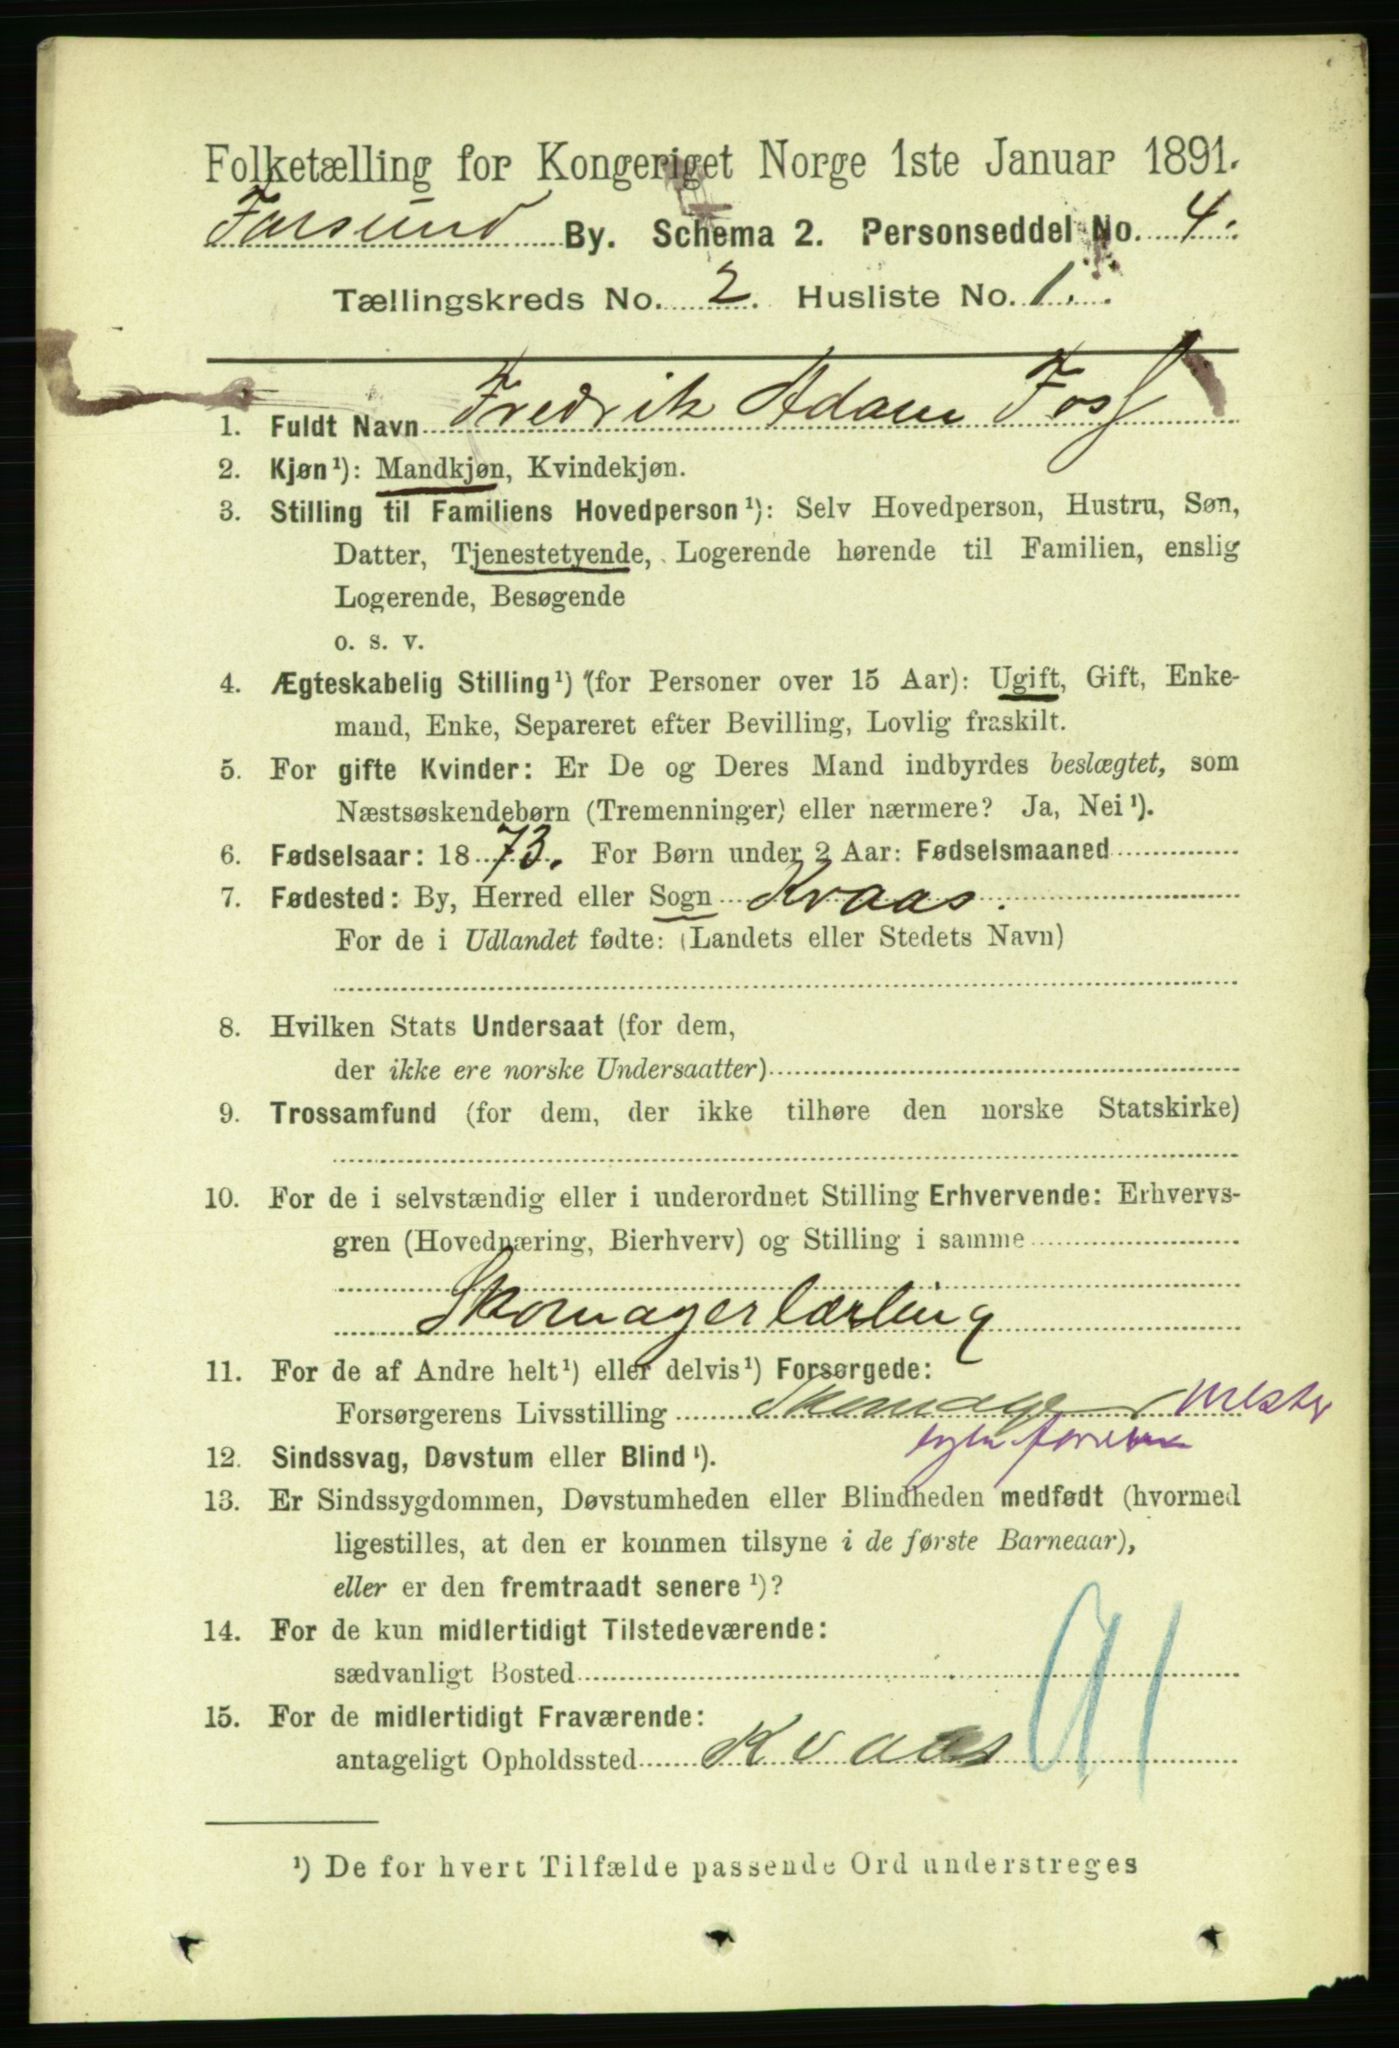 Folketælling for Kongeriget Norge 1ste Januar 1891.
Farsund By. Schema 2. Personseddel No. 4.
Tællingskreds No. 2. Husliste No. 1.
1. Fuldt Navn Fredrik Adam Foss
2. Kjøn¹): Mandkjøn, Kvindekjøn.
3. Stilling til Familiens Hovedperson¹): Selv Hovedperson, Hustru, Søn,
Datter, Tjenestetyende, Logerende hørende til Familien, enslig
Logerende, Besøgende
o. s. v.
4. Ægteskabelig Stilling¹) (for Personer over 15 Aar): Ugift, Gift, Enke-
mand, Enke, Separeret efter Bevilling, Lovlig fraskilt.
5. For gifte Kvinder: Er De og Deres Mand indbyrdes beslægtet, som
Næstsøskendebørn (Tremenninger) eller nærmere? Ja, Nei¹).
6. Fødselsaar: 1873. For Børn under 2 Aar: Fødselsmaaned
7. Fødested: By, Herred eller Sogn Kvaas.
For de i Udlandet fødte: (Landets eller Stedets Navn)
8. Hvilken Stats Undersaat (for dem,
der ikke ere norske Undersaatter)
9. Trossamfund (for dem, der ikke tilhøre den norske Statskirke)
10. For de i selvstændig eller i underordnet Stilling Erhvervende: Erhvervs-
gren (Hovednæring, Bierhverv) og Stilling i samme
Skomagerlærling
11. For de af Andre helt¹) eller delvis¹) Forsørgede:
Forsørgerens Livsstilling Skomager Mester
12. Sindssvag, Døvstum eller Blind¹).
13. Er Sindssygdommen, Døvstumheden eller Blindheden medfødt (hvormed
ligestilles, at den er kommen tilsyne i de første Barneaar),
eller er den fremtraadt senere¹)?
14. For de kun midlertidigt Tilstedeværende:
sædvanligt Bosted
15. For de midlertidigt Fraværende:
antageligt Opholdssted Kvaas
91
¹) De for hvert Tilfælde passende Ord understreges